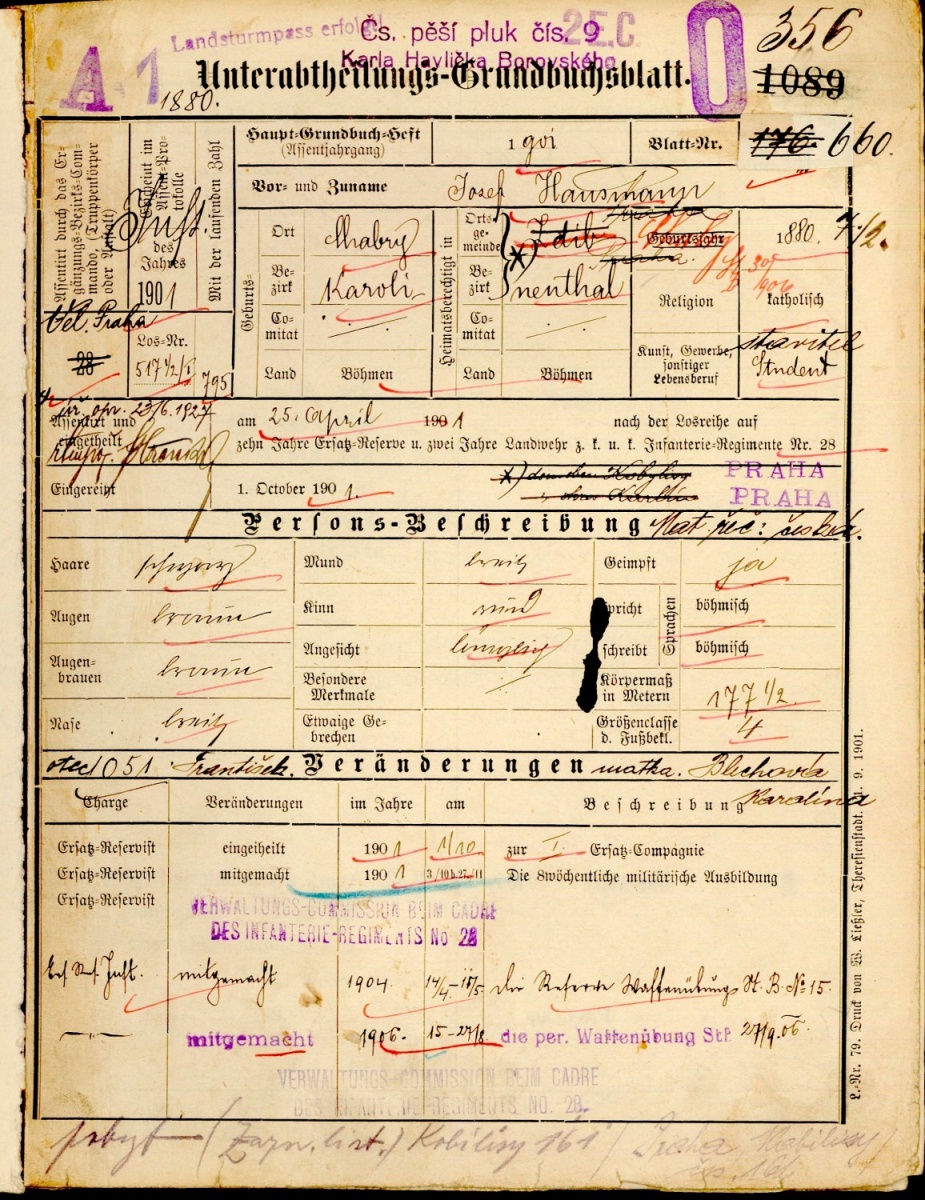 A 1 Landsturmpass erfolgt! 2E.C. 0 356
Čs. pěší pluk čís. 9
Karla Havlíčka Borovského
Unterabtheilungs-Grundbuchsblatt. 1089
1880.
Assentirt durch das Ergänzungs-Bezirks-Commando, (Truppenkörper oder Anstalt)
Vel. Praha
28
Erscheint im Assent-Protokolle
des Jahres
1901
Mit der laufenden Zahl
Los-Nr.
517 1/2/I
795
Haupt-Grundbuch-Heft
(Assentjahrgang) 1901 Blatt-Nr. 176 660.
Vor- und Zuname Josef Hausmann
Geburts-
Ort Chabry
Bezirk Karoli-
Comitat
Land Böhmen
Heimatsberechtigt in
Ortsgemeinde Zdib
Praha
Bezirk nenthal
Comitat
Land Böhmen
Geburtsjahr 1880. 7/12.
Religion katholisch
Kunst, Gewerbe, sonstiger Lebensberuf
stavitel
Student
23/6. 1927
Assentirt und eingetheilt am 25. April 1901 nach der Losreihe auf
zehn Jahre Ersatz-Reserve u. zwei Jahre Landwehr z. k. u. k. Infanterie-Regimente Nr. 28
Eingereiht 1. October 1901. PRAHA
PRAHA
Persons-Beschreibung Mat. řeč: česká.
Haare schwarz Mund breit Geimpft ja
Augen braun Kinn rund spricht Sprachen böhmisch
Augenbrauen braun Angesicht länglich schreibt böhmisch
Besondere Merkmale Körpermaß in Metern 177 1/2
Nase breit Etwaige Gebrechen Größenclasse d. Fußbekl. 4
otec 1051 František. Veränderungen matka. Blechová
Karolina
Charge Veränderungen im Jahre am Beschreibung
Ersatz-Reservist eingetheilt 1901 1/10 zur I. Ersatz-Compagnie
Ersatz-Reservist mitgemacht 1901 3/10 b. 27./11 Die 8wöchentliche militärische Ausbildung
Ersatz-Reservist
VERWALTUNGS-COMMISSION BEIM CADRE
DES INFANTERIE-REGIMENTS No 28
Ers. Res. Inft. mitgemacht 1904 14/4-11/5 die Reserve Waffenübung St. B. No 15.
mitgemacht 1906. 15-27/8 die per. Waffenübung Stf. 27/9. 06.
VERWALTUNGS-COMMISSION BEIM CADRE
DES INFANTERIE-REGIMENTS NO. 28.
pobyt - (Zapn. list.) Kobilisy 161 / Praha Kobilisy
čp. 161
L.-Nr. 79. Druck von W. Ließler, Theresienstadt. 11. 9. 1901.